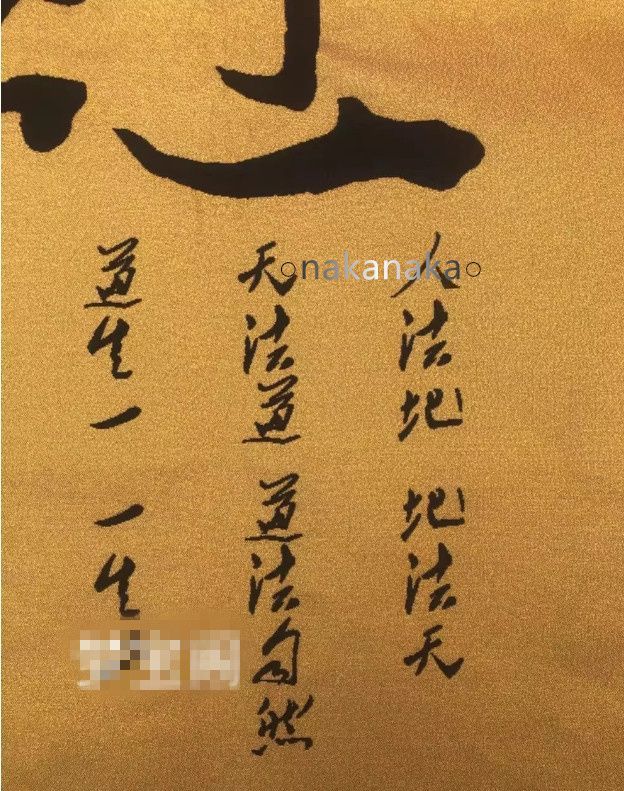 人法地 地法天
天法道 道法自然
道生一 一生
◦nakanaka◦